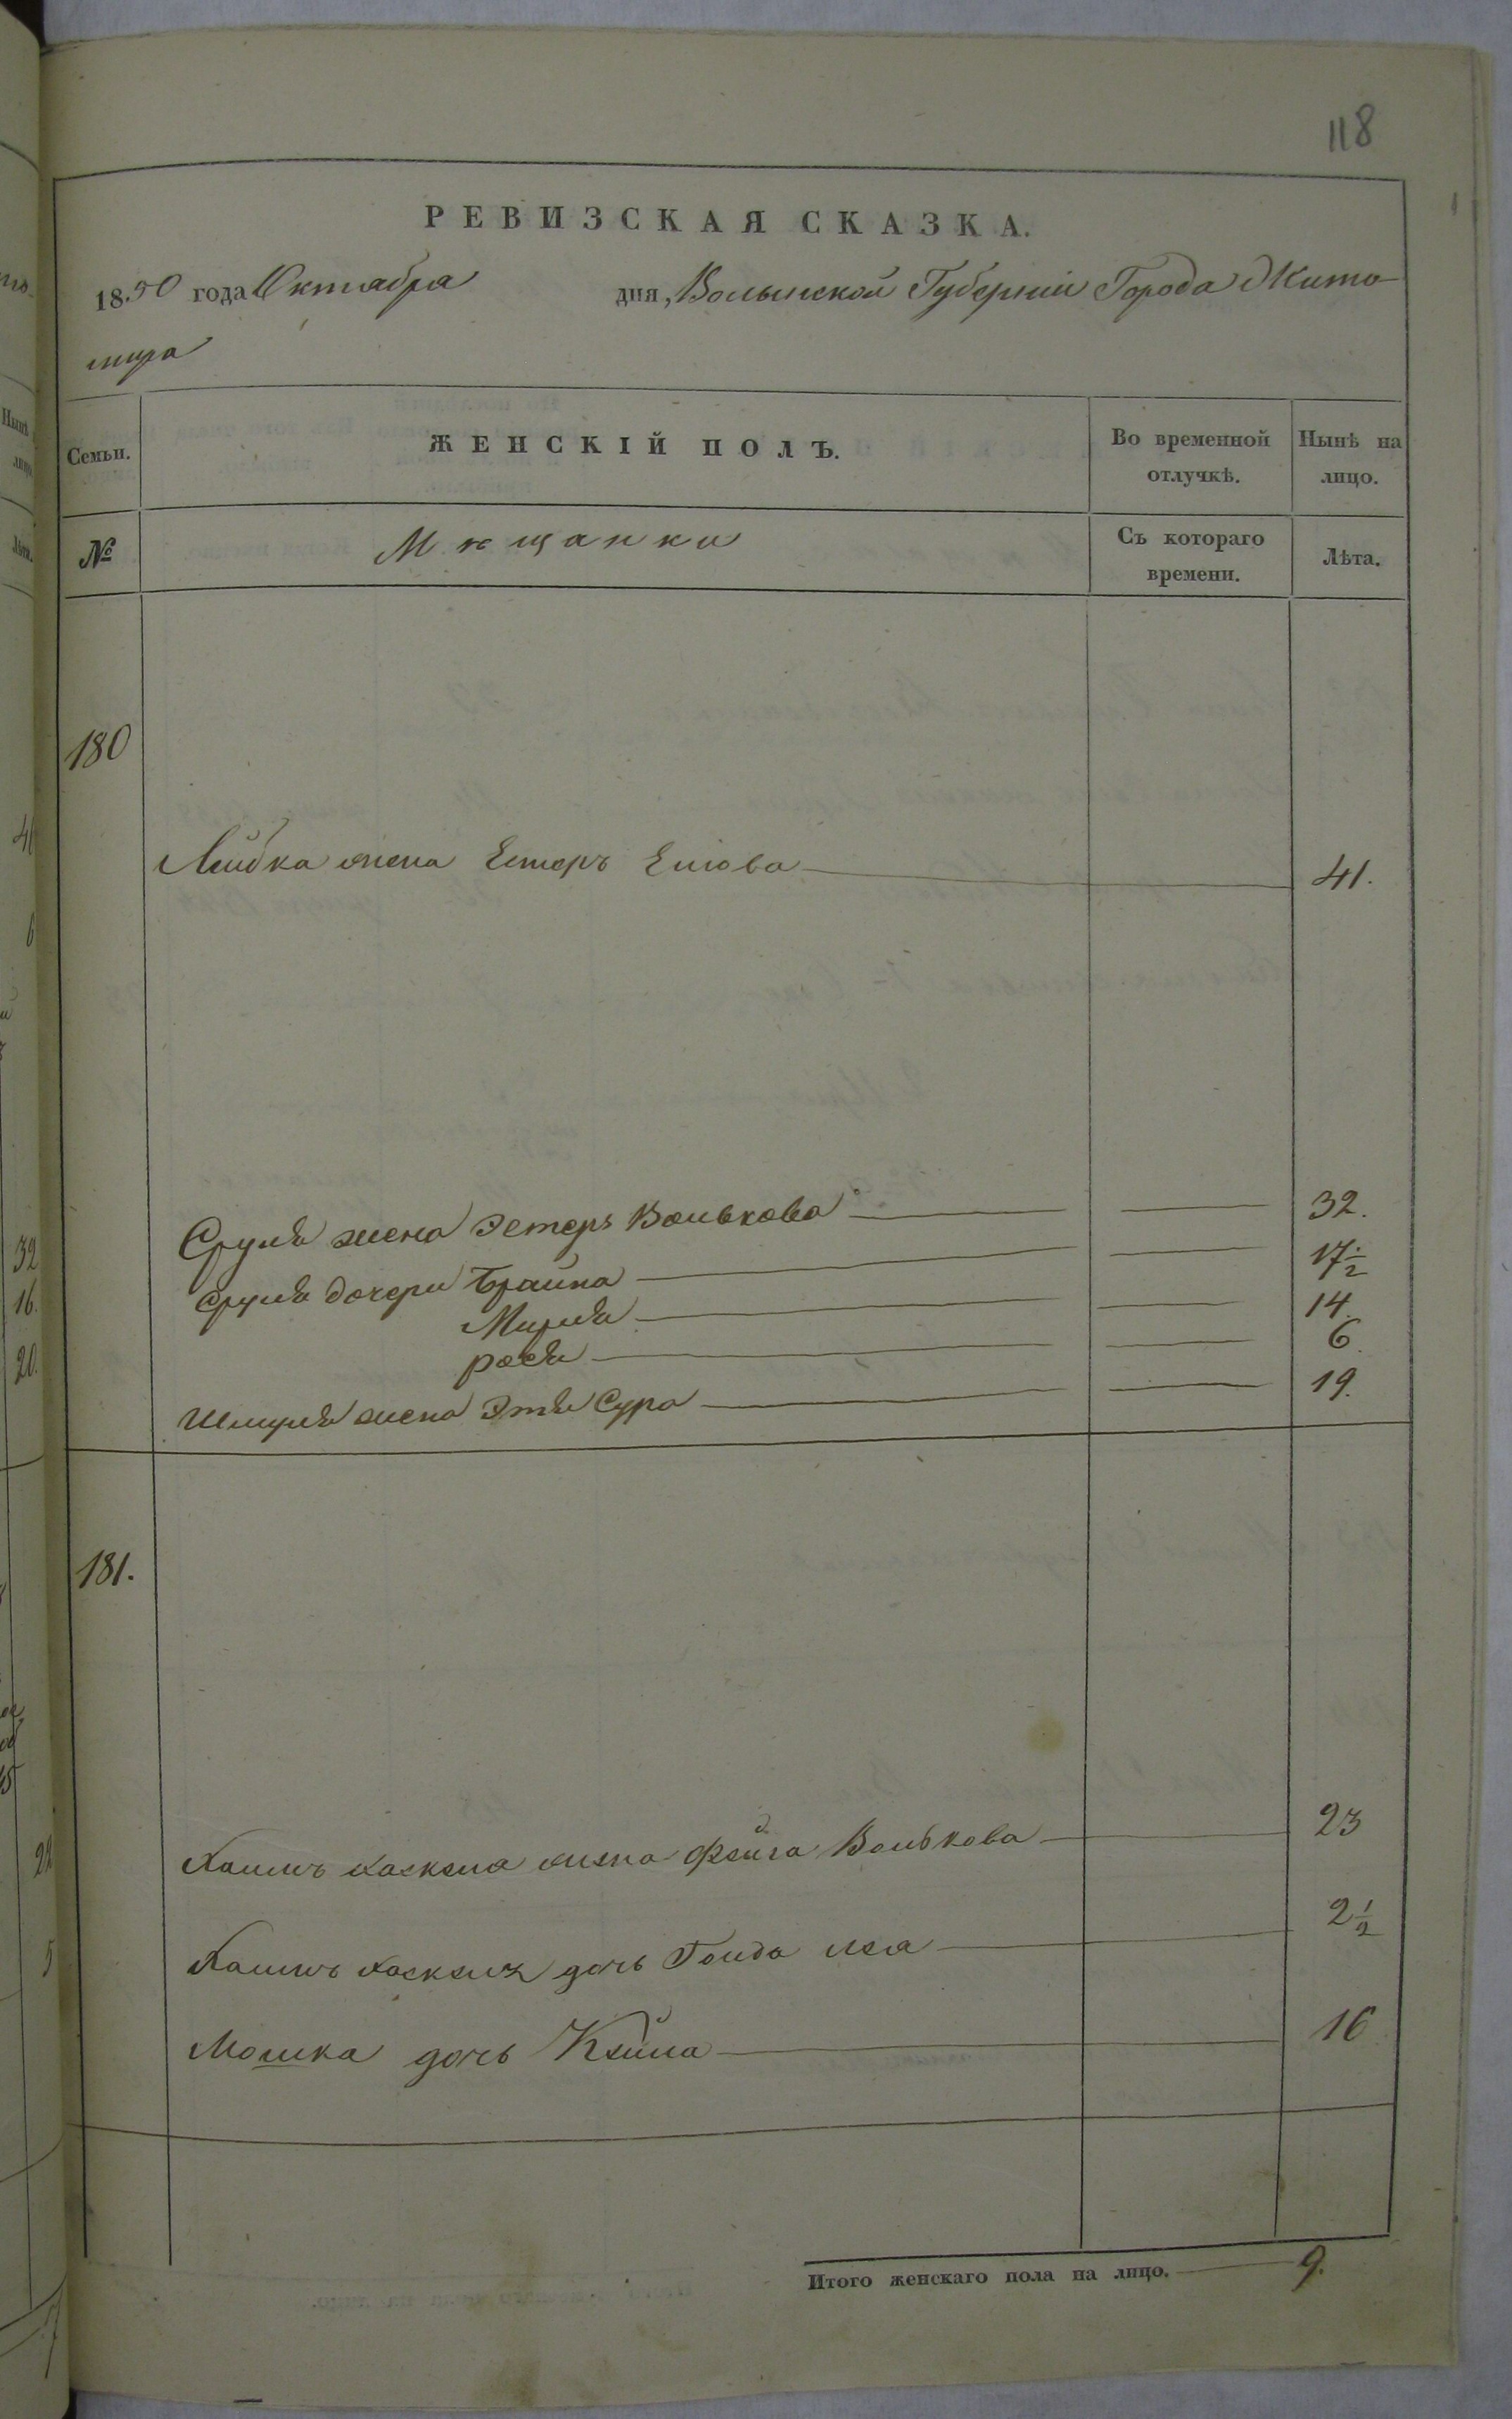 118
РЕВИЗСКАЯ СКАЗКА.
18.50 года Октября дня, Волынской Губернии Города Жито-
мира
Семьи. ЖЕНСКІЙ ПОЛЪ. Во временной отлучкѣ. Нынѣ на лицо.
№ Мѣщанки Съ котораго времени. Лѣта.
180
Лейбка жена Естеръ Елова 41.
Сруля жена Эстеръ Волькова 32.
Сруля дочери Брайна 17 1/2
Мириля 14.
рося 6.
Шмуля жена Этя Сура 19.
181.
Хаимъ Хаскеля жена Фейга Волькова 23
Хаимъ Хаскеля дочь Голда лея 2 1/2
Мошка дочь Кейла 16
Итого женскаго пола на лицо. 9.